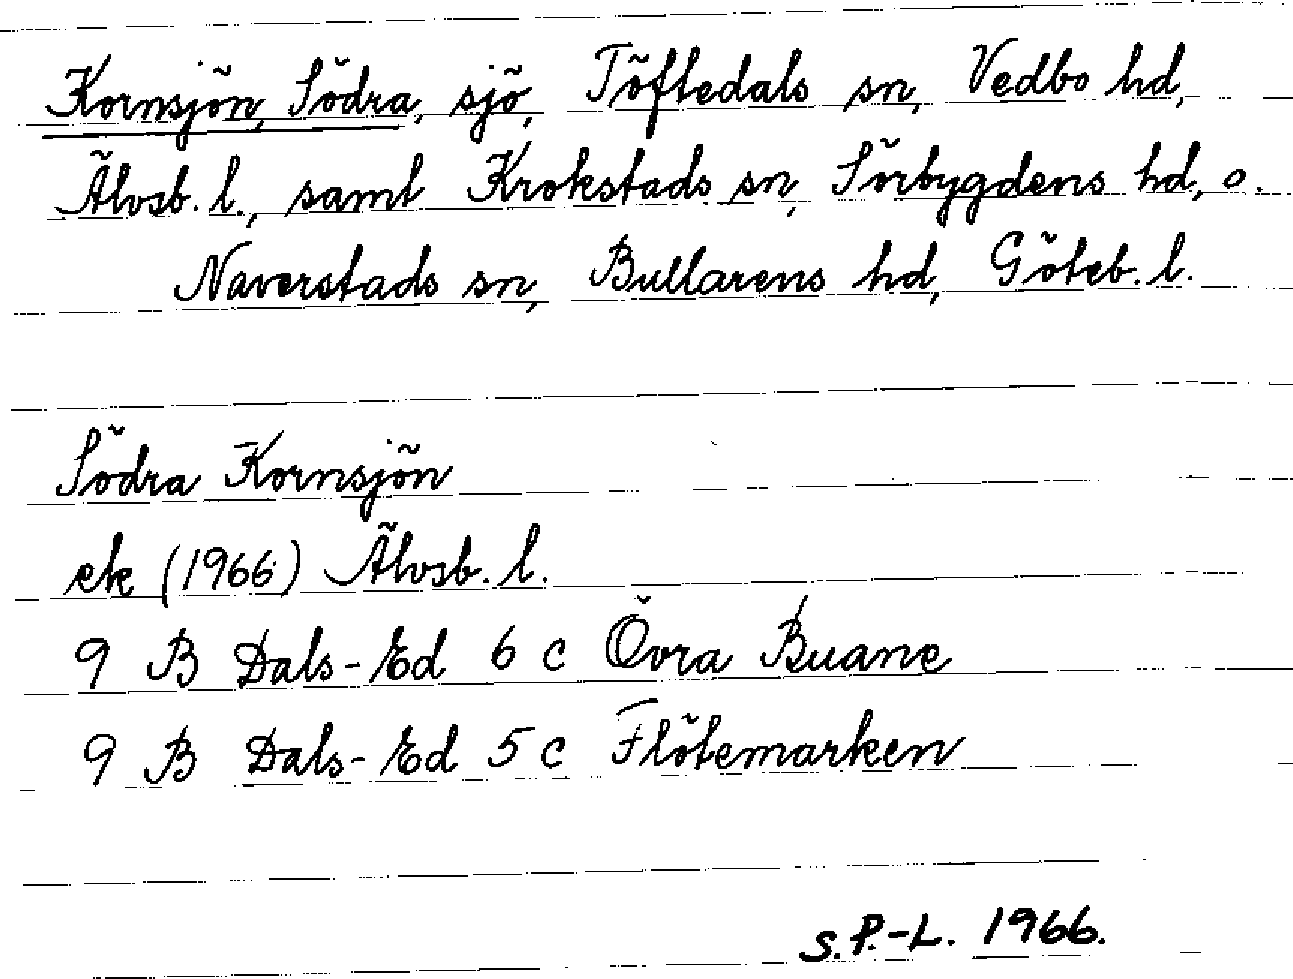 Kornsjön, Södra, sjö, Töftedals sn, Vedbo hd,
Älvsb. l., samt Krokstads sn, Sörbygdens hd, o.
Naverstads sn, Bullarens hd, Göteb. l.
Södra Kornsjön
ek (1966) Älvsb. l.
9 B Dals-Ed 6 c Övra Buane
9 B Dals-Ed 5 c Flötemarken
S.P.-L. 1966.